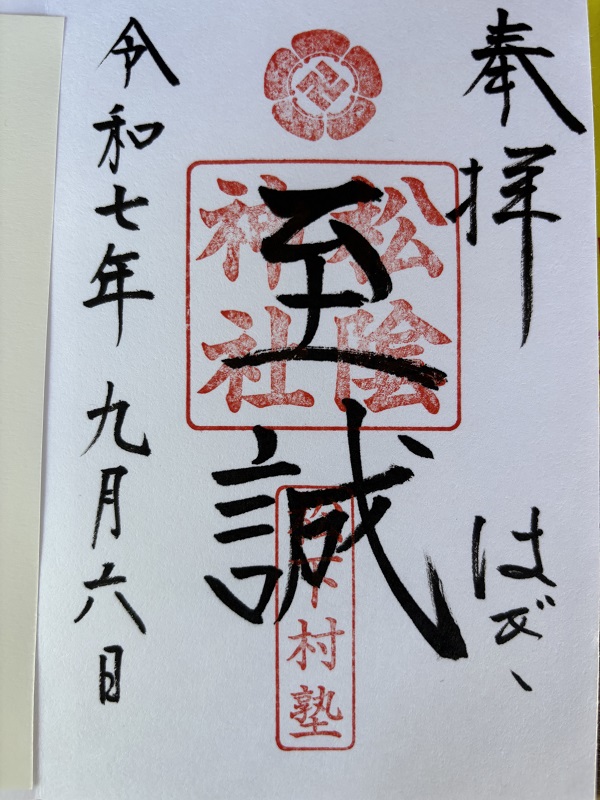 奉拝
はぎ、
至誠
松陰
神社
松下村塾
令和七年 九月六日